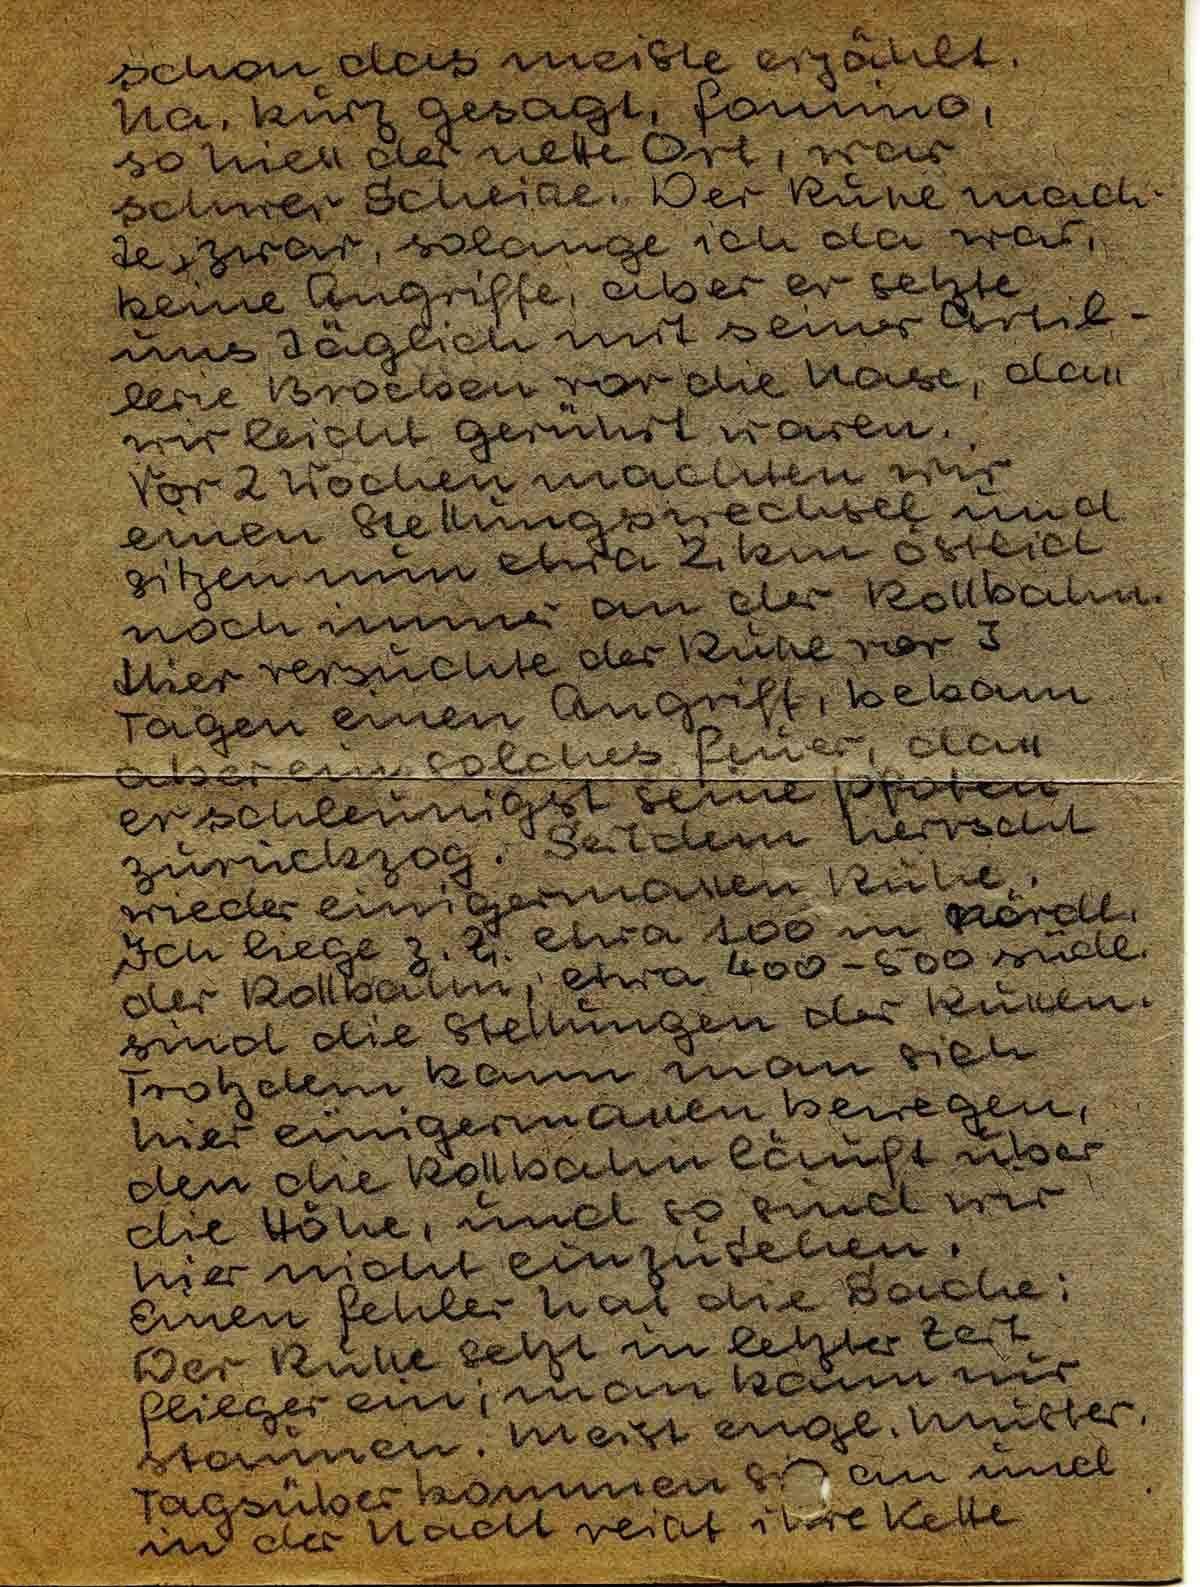 schon das meiste erzählt.
Na, kurz gesagt, Fomino,
so hieß der nette Ort, war
schwer Scheiße. Der Ruße mach-
te, zwar, solange ich da war,
keine Angriffe, aber er setzte
uns täglich mit seiner Artil-
lerie Brocken vor die Nase, daß
wir leicht gerührt waren.
Vor 2 Wochen machten wir
einen Stellungswechsel und
sitzen nun etwa 2 km östlich
noch immer an der Rollbahn.
Hier versuchte der Ruße vor 3
Tagen einen Angriff, bekam
aber ein solches Feuer, daß
er schleunigst seine Pfoten
zurückzog. Seitdem herrscht
wieder einigermaßen Ruhe.
Ich liege z. Z. etwa 100 m nördl.
der Rollbahn, etwa 400-500 südl.
sind die Stellungen der Rußen.
Trotzdem kann man sich
hier einigermaßen bewegen,
den die Rollbahn läuft über
die Höhe, und so sind wir
hier nicht einzusehen.
Einen Fehler hat die Sache:
Der Ruße setzt in letzter Zeit
Flieger ein; man kann nur
staunen. Meist engl. Muster.
Tagsüber kommen an und
in der Nacht reißt ihre Kette